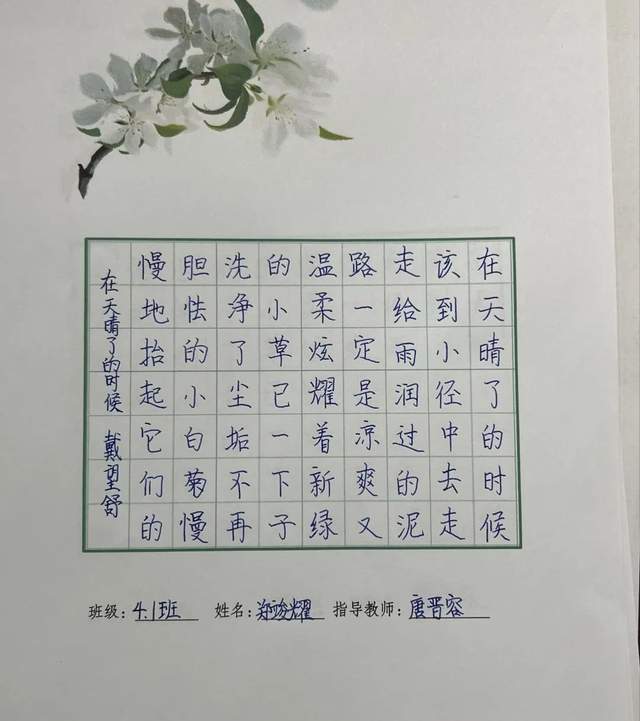 在天晴了的时候
该到小径中去走
走给雨润过的泥
路一定是凉爽又
温柔炫耀着新绿
的小草已一下子
洗净了尘垢不再
胆怯的小白菊慢
慢地抬起它们的
在天晴了的时候 戴望舒
班级：4.1班 姓名：郑骏耀 指导教师：唐晋容